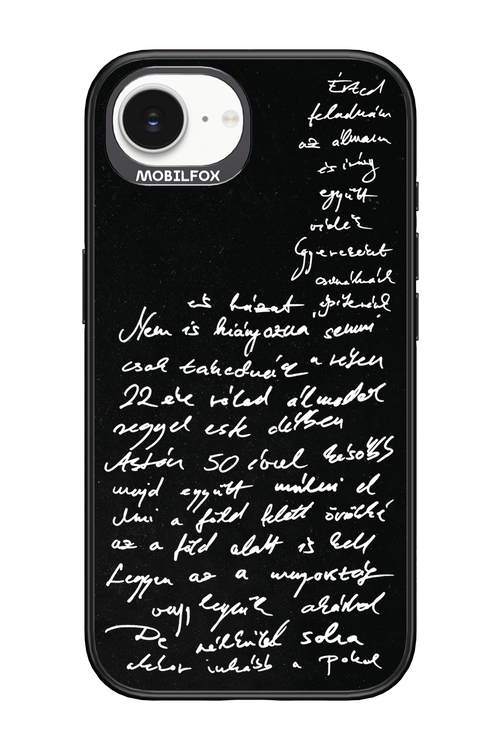 MOBILFOX
Érted
feladnám
az álmaim
és irány
együtt
vidék
Gyerekeket
csinálnék
és házat építenék
Nem is hiányozna semmi
csak takednék a réten
22 éve rólad álmodok
reggel este délben
Aztán 50 évvel később
majd együtt múlni el
Ami a föld felett örökké
az a föld alatt is kell
Legyen az a mennyország
vagy legyünk akárhol
De nélküled soha
akkor inkább a pokol